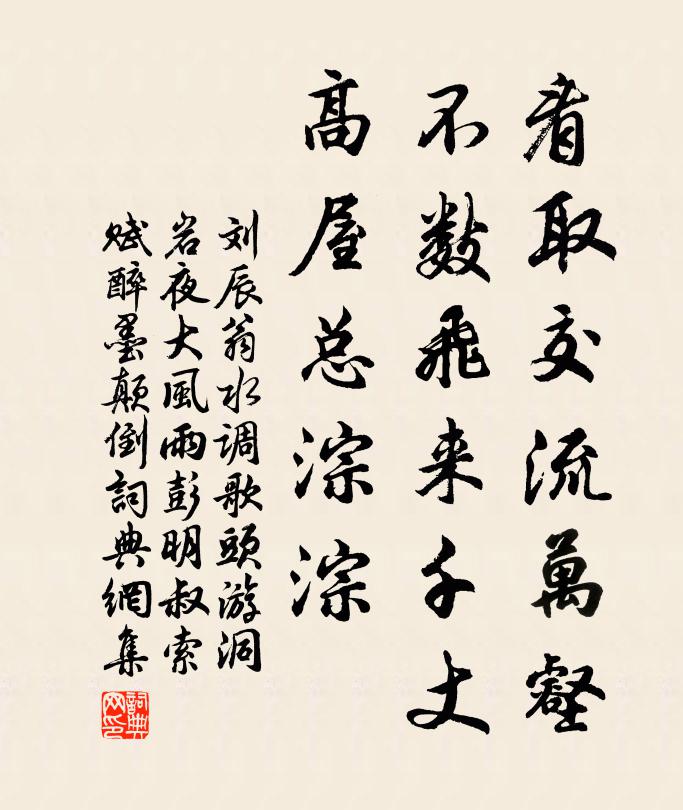 看取交流萬壑
不数飛来千丈
高屋总淙淙
刘辰翁水调歌頭游洞
岩夜大風雨彭明叔索
赋醉墨颠倒詞典網集
詞典网印